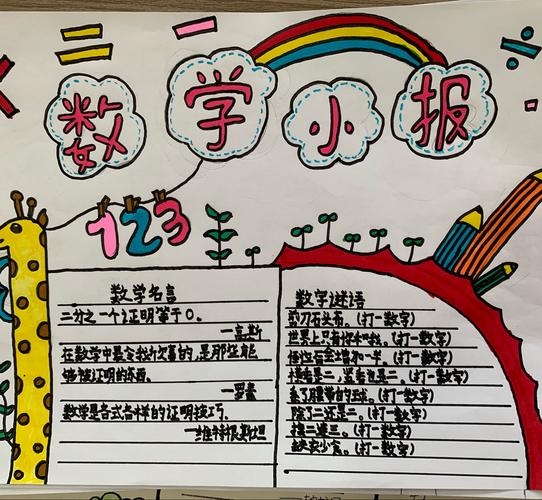 数学小报
123
数学名言
二分之一个证明等于0。
—高斯
在数学中最令我欣喜的,是那些能
够被证明的东西。
—罗素
数学是各式各样的证明技巧。
—维特根斯坦
数字谜语
剪刀石头布。(打一数字)
世界上只有你和我。(打一数字)
(打一数字)
横看是二,竖看也是二。(打一数字)
系了腰带的球。(打一数字)
除了二还是二。(打一数字)
接二连三。(打一数字)
缺衣少食。(打一数字)